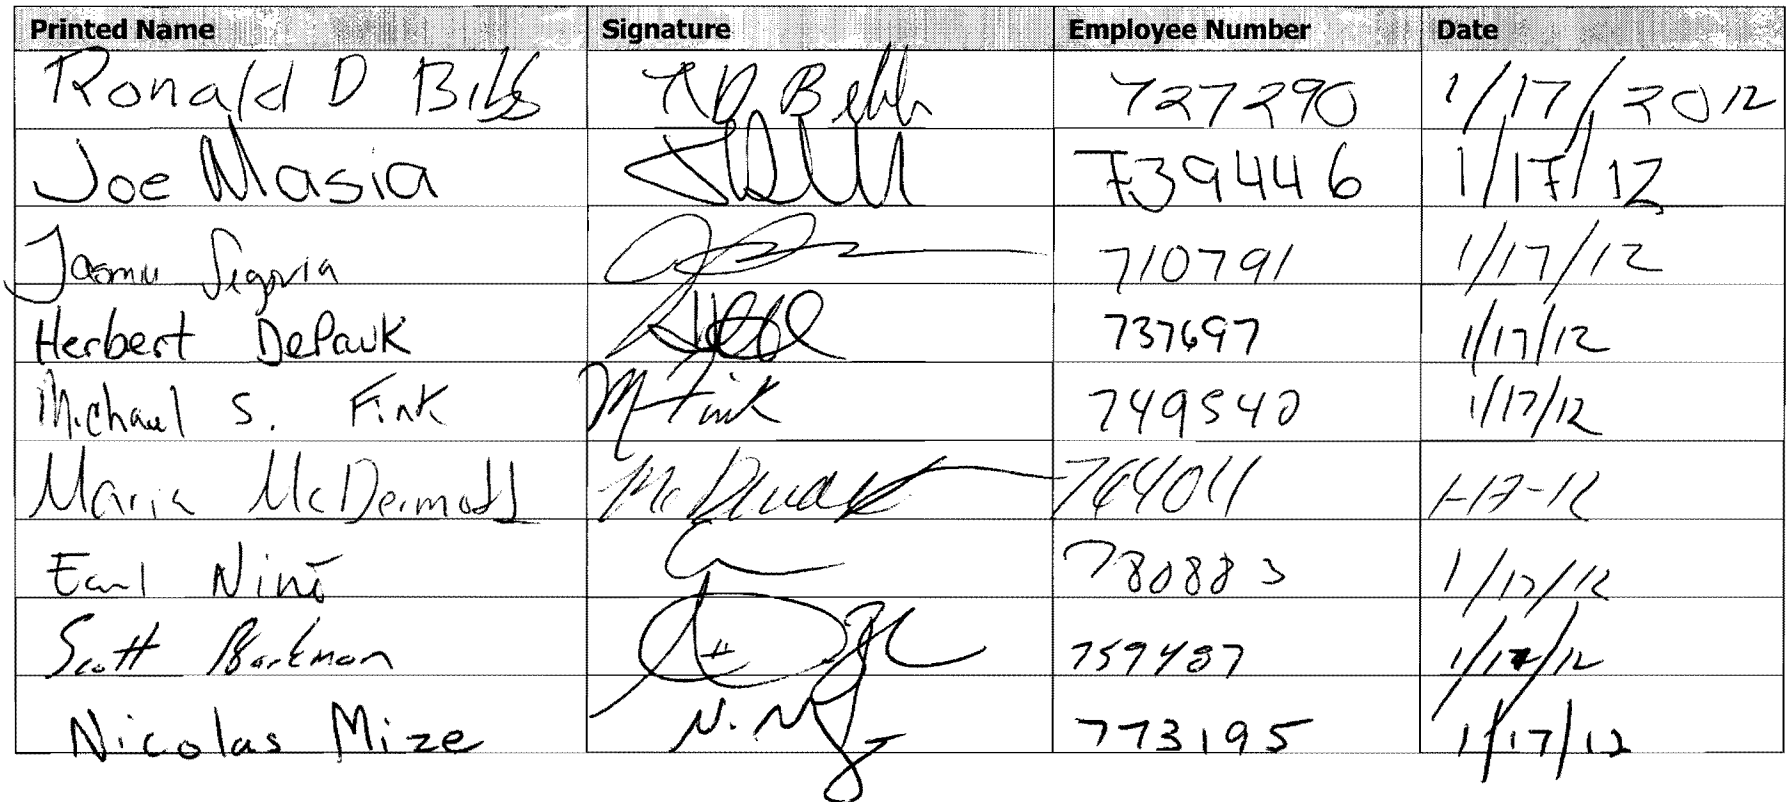 Printed Name Signature Employee Number Date
Ronald D Bibb RD Bibb 727290 1/17/2012
Joe Masia 739446 1/17/12
Segovia 710791 1/17/12
Herbert DePauk 737697 1/17/12
Michael S. Fink M Fink 749540 1/17/12
Maria McDermott 1-17-12
Earl Nini 780883 1/17/12
Scott Barkman 1/17/12
Nicolas Mize 773195 1/17/12